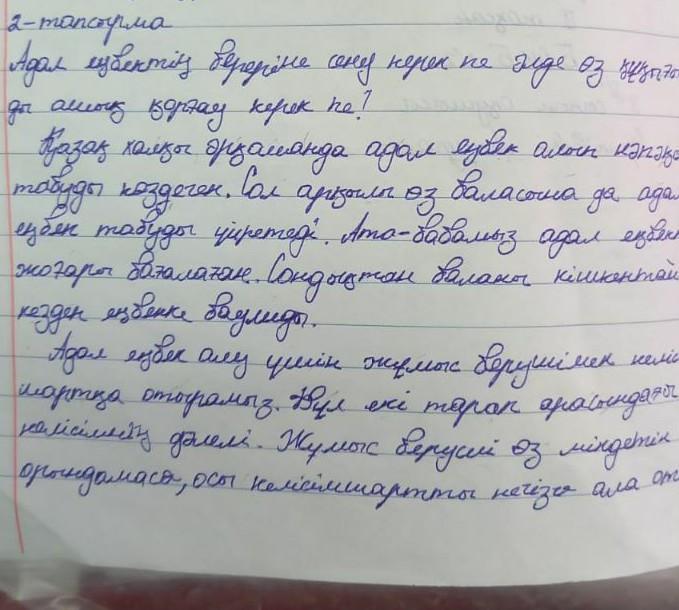 2-тапсырма
Адал еңбектің беретініне сену керек пе әлде өз құқығы
ды ашық қорғау керек пе?
Қазақ халқы әрқашанда адал еңбек алып нәпақа
табуды көздеген. Сол арқылы өз баласына да адал
еңбек табуды үйретеді. Ата-бабамыз адал еңбек
жоғары бағалаған. Сондықтан баланы кішкентай
кезден еңбекке баулиды.
Адал еңбек алу үшін жұмыс берушімен келіс
шартқа отырамыз. Бұл екі тарап арасындағы
келісімнің дәлелі. Жұмыс беруші өз міндетін
орындамаса, осы келісімшартты негізге ала от